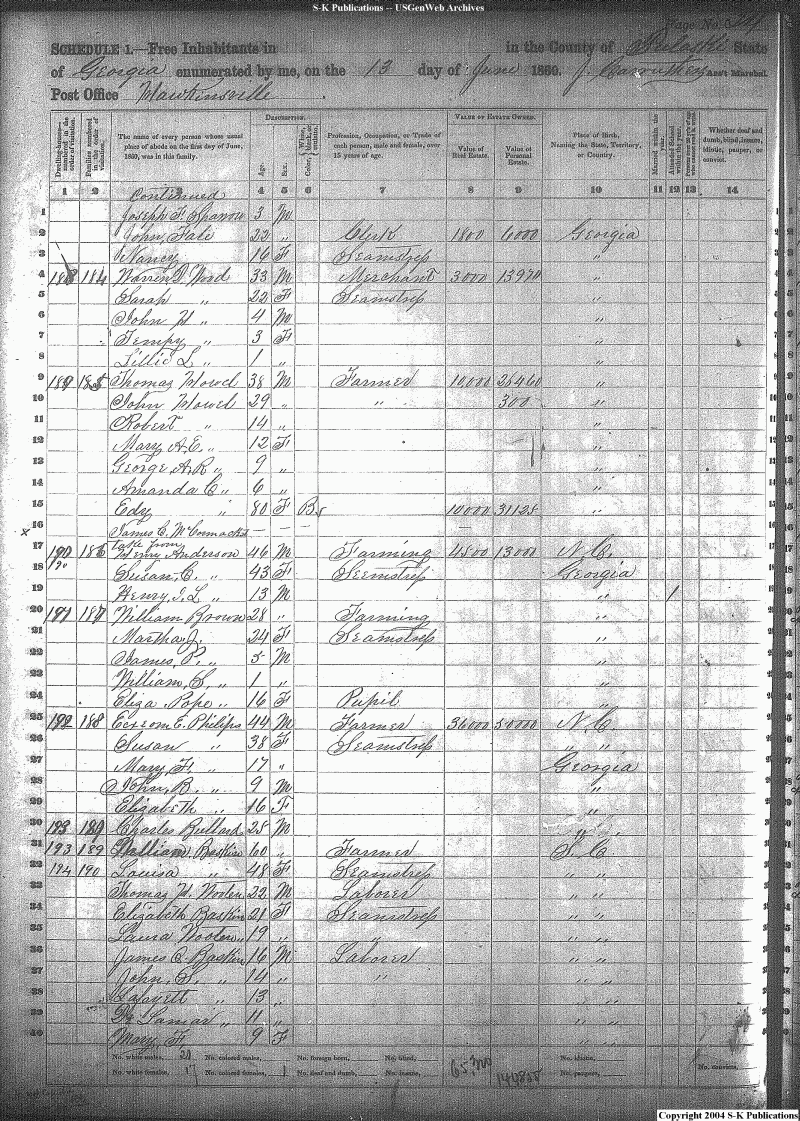 S-K Publications -- USGenWeb Archives
Page No.
SCHEDULE 1.—Free Inhabitants in in the County of Pulaski State
of Georgia enumerated by me, on the 13 day of June 1860. J. Ass't Marshal.
Post Office Hawkinsville
Dwelling-houses—numbered in the order of visitation. Families numbered in the order of visitation. The name of every person whose usual place of abode on the first day of June, 1860, was in this family. DESCRIPTION. Age. Sex. Color Profession, Occupation, or Trade of each person, male and female, over 15 years of age. VALUE OF ESTATE OWNED. Value of Real Estate. Value of Personal Estate. Place of Birth, Naming the State, Territory, or Country. Married within the year. Attended School within the year. Whether deaf and dumb, blind, insane, idiotic, pauper, or convict.
1 2 3 4 5 6 7 8 9 10 11 12 13 14
Continued
1 Joseph F. Sparrow 3 M
2 John, Fale 22 " Clerk 1800 6000 Georgia
3 Nancy 16 F Seamstress "
4 184 Warren D Wood 33 M Merchant 3000 13970 "
5 Sarah " 22 F Seamstress "
6 John H " 4 M "
7 Tempy " 3 F "
8 Lillie L " 1 " "
9 189 185 Thomas Howel 38 M Farmer 10,000 28460 "
10 John Howel 29 " " 300 "
11 Robert " 14 " "
12 Mary A.E. " 12 F "
13 George, A.R " 9 " "
14 Amanda C " 6 " "
15 Edy " 80 F B 10000 31125 "
16 James C. McCormack — —
17 190 186 Henry Anderson 46 M Farming 4500 13000 N.C.
18 Susan, C. " 43 F Seemstress Georgia
19 Henry, J. L " 13 M " 1
20 191 187 William Brown 28 " Farming "
21 Martha J. 24 F Seamstress "
22 James, P. " 5 M "
23 William, S. " 1 " "
24 Eliza Pope " 16 F Pupil "
25 192 188 E. Philips 44 M Farmer 36000 50000 N.C
26 Susan " 38 F Seamstress " "
27 Mary, F. " 17 " Georgia
28 John, B. " 9 M "
29 Elizabeth " 16 F "
30 193 189 Charles Bullard 25 M " "
31 193 189 William Baskin 60 " Farmer S. C
32 194 190 Louisa " 48 F Seamstress " "
33 Thomas H. Wooten 22 M Laborer " "
34 Elizabeth Baskin 21 F Seamstress " "
35 Laura Wooten " 19 " " " "
36 James C. Baskin 16 M Laborer " "
37 John, S. " 14 " " " "
38 Lafayett " 13 " " "
39 Lamar " 11 " " "
40 Mary, F. 9 F " "
No. white males, 20 No. colored males, No. foreign born, No. blind, No. idiotic,
No. white females, 17 No. colored females, 1 No. deaf and dumb, No. insane, 65,300 No. paupers, No. convicts,
Copyright 2004 S-K Publications